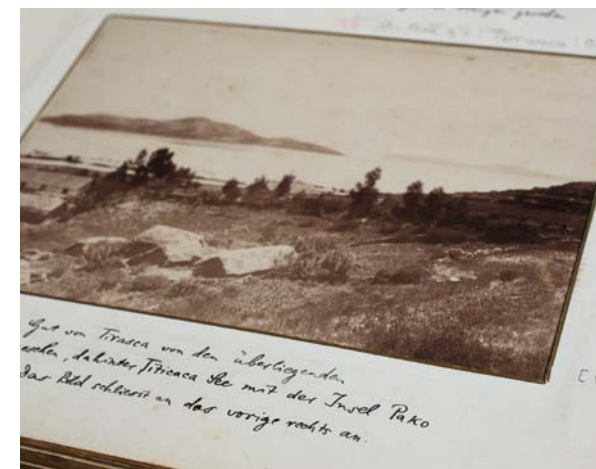 Gut von Tirasca von den überliegenden
, dahinter Titicaca See mit der Insel Pako
Das Bild schliesst an das vorige rechts an.